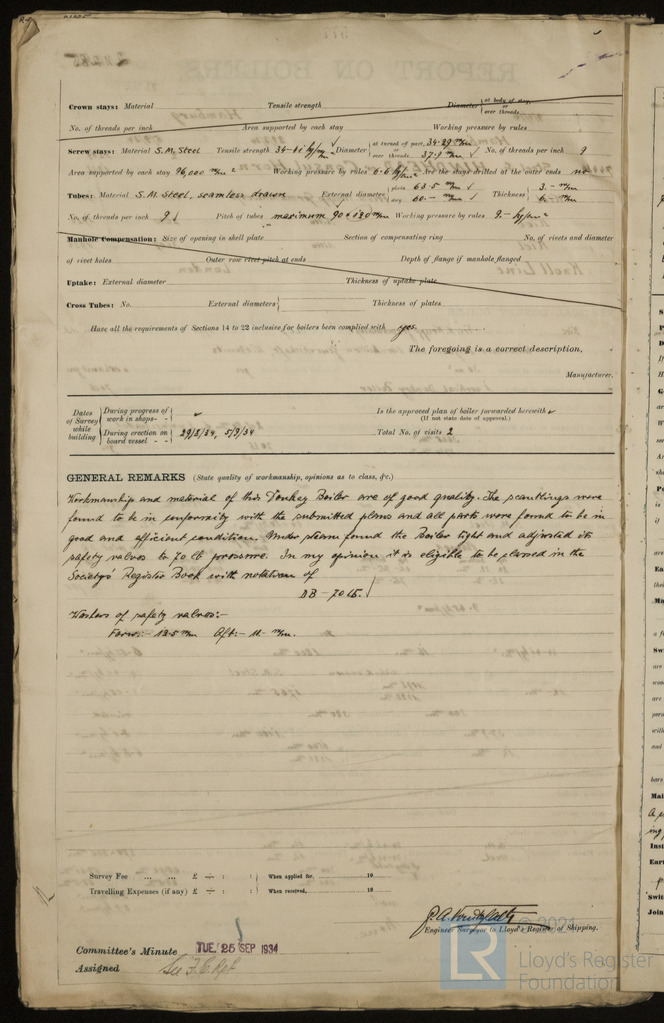 Crown stays: Material Tensile strength Diameter {at body of stay, or over threads
No. of threads per inch Area supported by each stay Working pressure by rules
Screw stays: Material S.M. Steel Tensile strength 34-41 kg/mm² Diameter {at turned off part, 34·29 mm or over threads 37·9 mm No. of threads per inch 9
Area supported by each stay 96,000 mm² Working pressure by rules 6·6 kg/cm² Are the stays drilled at the outer ends no
Tubes: Material S.M. Steel, seamless drawn External diameter {plain 63·5 mm stay 60·- mm Thickness {3·- mm 6·- mm
No. of threads per inch 9 Pitch of tubes maximum Working pressure by rules 9·- kg/cm²
Manhole Compensation: Size of opening in shell plate Section of compensating ring No. of rivets and diameter
of rivet holes Outer row rivet pitch at ends Depth of flange if manhole flanged
Uptake: External diameter Thickness of uptake plate
Cross Tubes: No. External diameters { Thickness of plates
Have all the requirements of Sections 14 to 22 inclusive for boilers been complied with yes.
The foregoing is a correct description,
Manufacturer.
Dates of Survey while building {During progress of work in shops - - { Is the approved plan of boiler forwarded herewith
(If not state date of approval.)
During erection on board vessel - - { 29/8/34, 5/9/34 Total No. of visits 2
GENERAL REMARKS (State quality of workmanship, opinions as to class, &c.)
Workmanship and material of this Donkey Boiler are of good quality. The scantlings were
found to be in conformity with the submitted plans and all parts were found to be in
good and efficient condition. Under steam found the Boiler tight and adjusted its
safety valves to 70 lb pressure. In my opinion it is eligible to be placed in the
Society's Register Book with notation of
DB - 70 lb.
Washers of safety valves:-
Forw:- 12·5 mm Aft:- 11·- mm.
Survey Fee ... ... £ : : When applied for, 19
Travelling Expenses (if any) £ : : When received, 19
Engineer Surveyor to Lloyd's Register of Shipping.
Committee's Minute TUE. 25 SEP 1934
Assigned See F.E. Rpt
© 2021
LR Lloyd's Register
Foundation